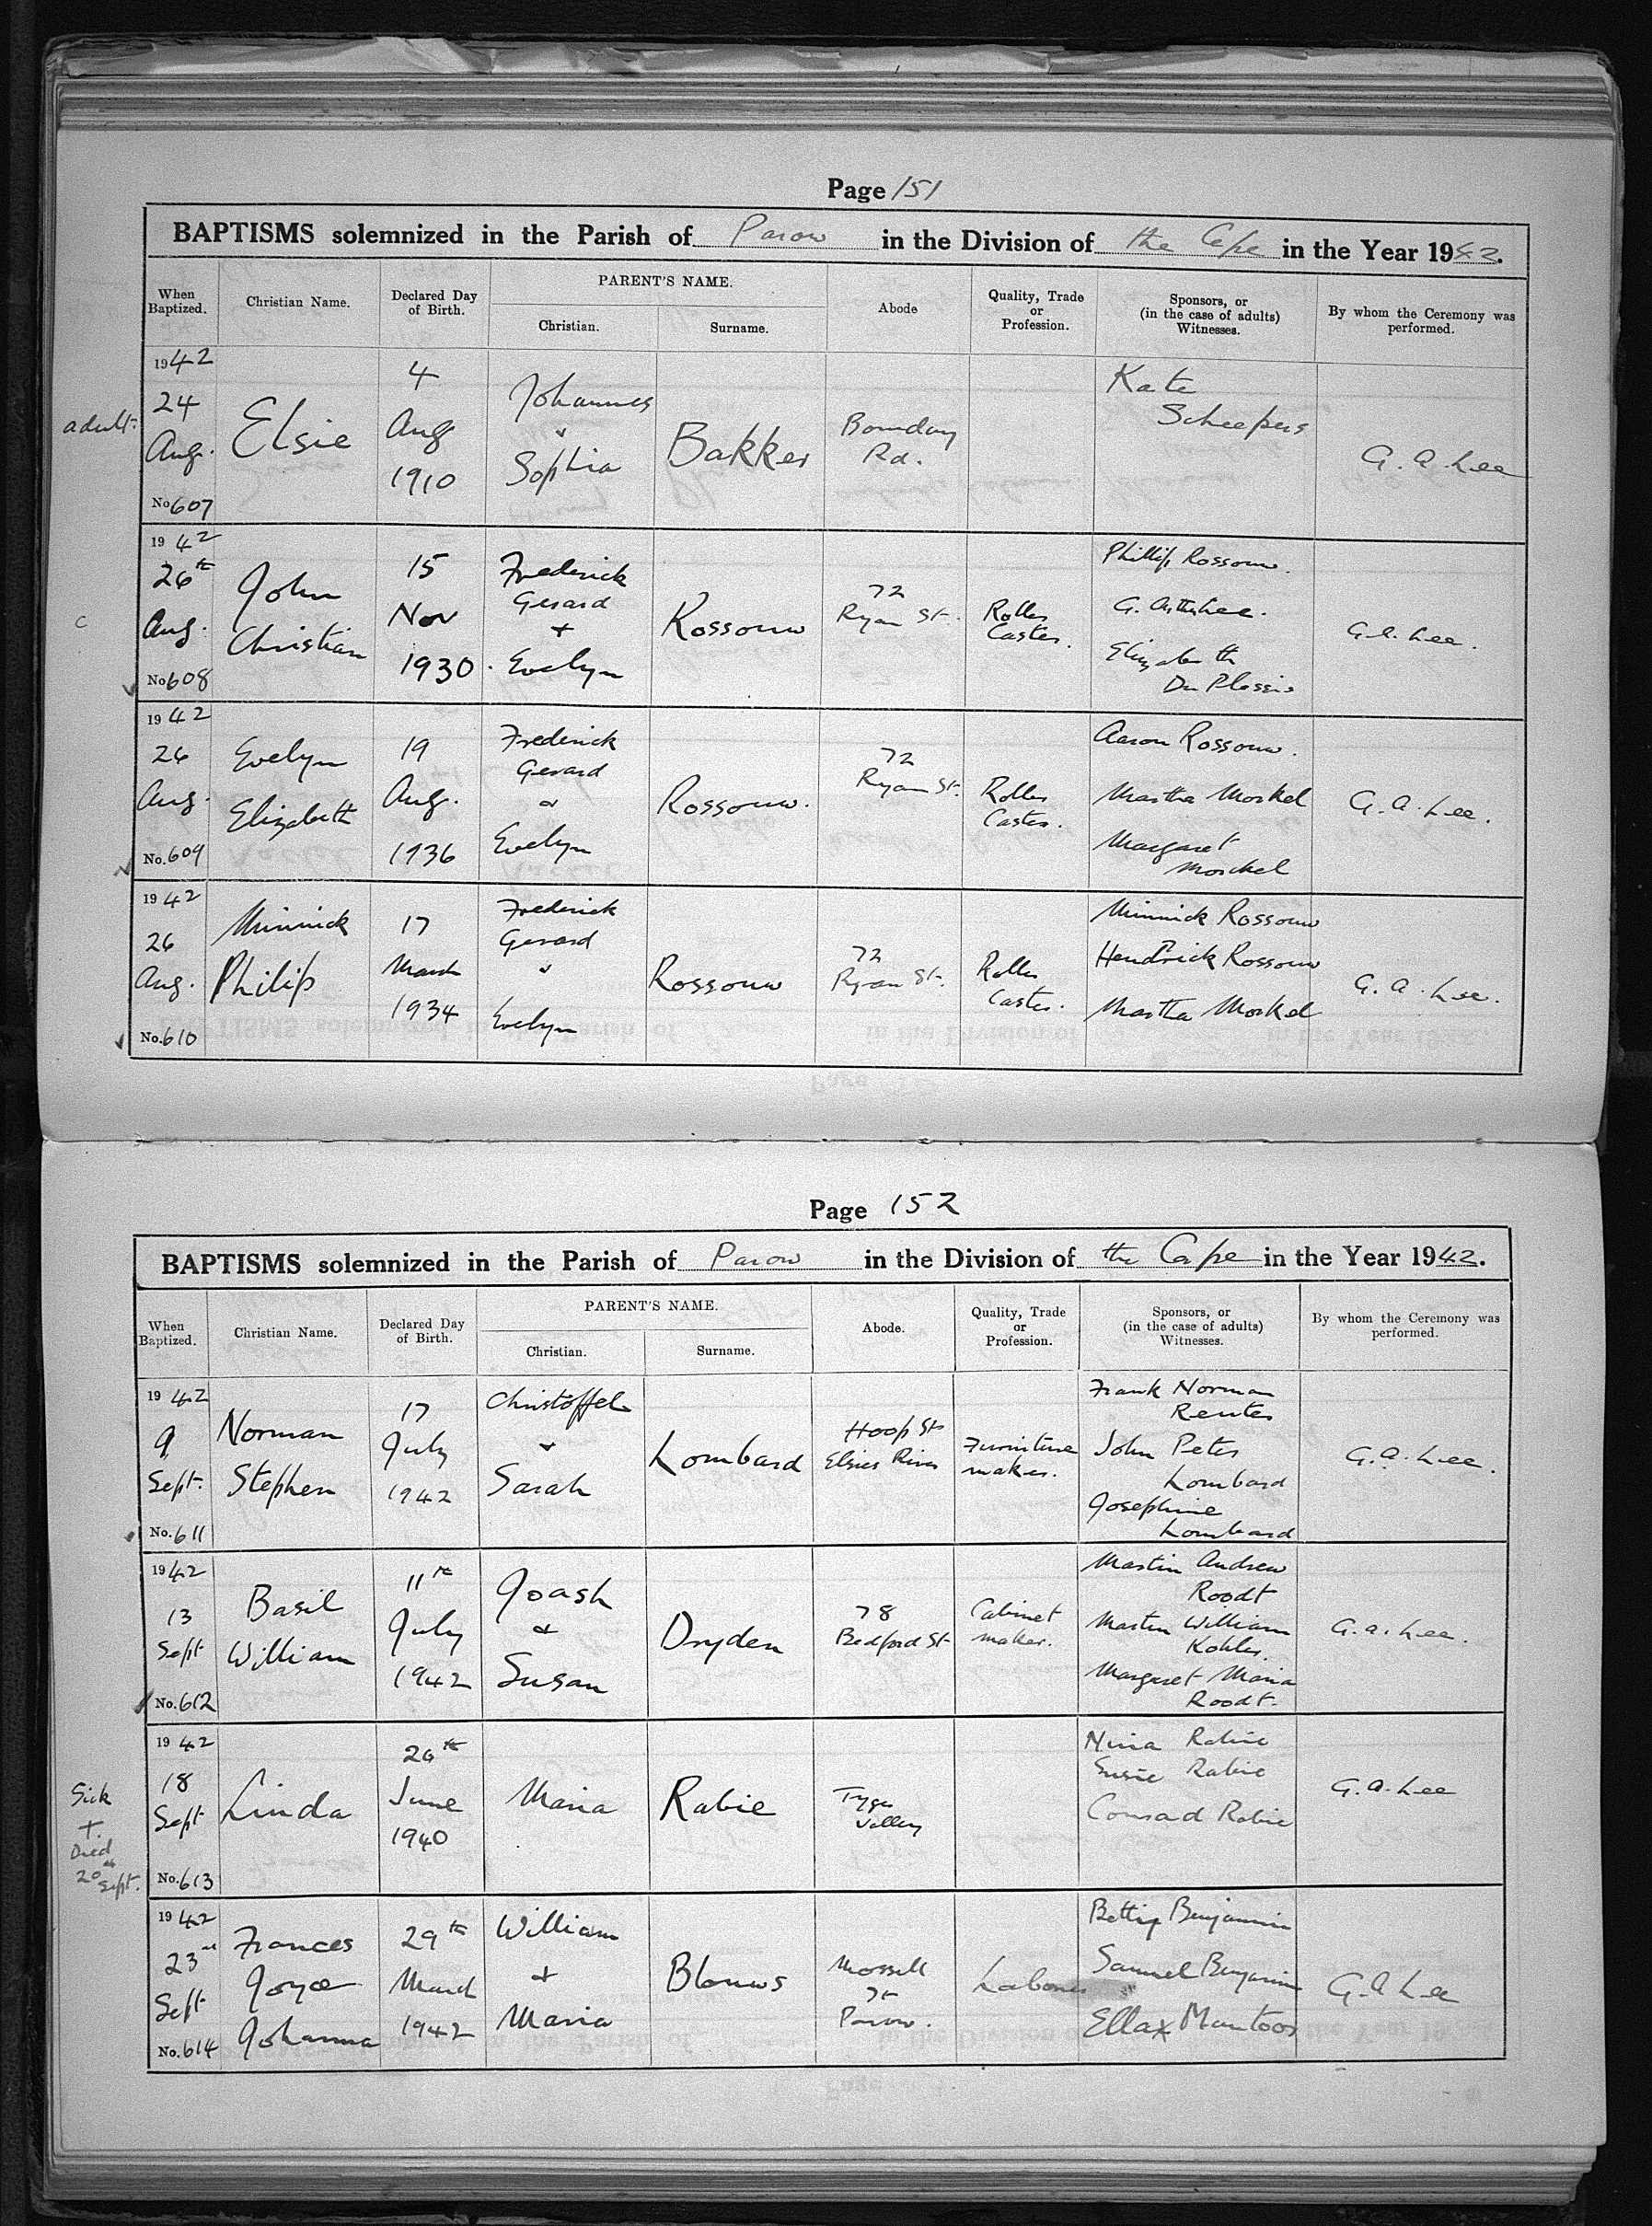 Page 151
BAPTISMS solemnized in the Parish of Parow in the Division of the Cape in the Year 1942.
When Baptized.
Christian Name.
Declared Day of Birth.
PARENT'S NAME.
Christian.
Surname.
Abode
Quality, Trade or Profession.
Sponsors, or (in the case of adults) Witnesses.
By whom the Ceremony was performed.
adult.
1942
24
Aug.
No 607
Elsie
4
Aug
1910
Johannes
&
Sophia
Bakker
Boundary
Rd.
Kate
Scheepers
G. A. Lee
c
1942
26th
Aug.
No 608
John
Christian
15
Nov
1930.
Frederick
Gerard
+
Evelyn
Rossouw
72
Ryan St.
Roller
Caster.
Phillip Rossouw.
G. Arthur Lee.
Elizabeth
Du Plessis
G. A. Lee.
1942
26
Aug.
No. 609
Evelyn
Elizabeth
19
Aug.
1936
Frederick
Gerard
&
Evelyn
Rossouw.
72
Ryan St.
Roller
Caster.
Aaron Rossouw.
Martha Morkel
Margaret
Morkel
G. A. Lee.
1942
26
Aug.
No. 610
Minnick
Philip
17
March
1934
Frederick
Gerard
&
Evelyn
Rossouw
72
Ryan St.
Roller
Caster.
Minnick Rossouw
Hendrick Rossouw
Martha Morkel
G. A. Lee.
Page 152
BAPTISMS solemnized in the Parish of Parow in the Division of the Cape in the Year 1942.
When Baptized.
Christian Name.
Declared Day of Birth.
PARENT'S NAME.
Christian.
Surname.
Abode.
Quality, Trade or Profession.
Sponsors, or (in the case of adults) Witnesses.
By whom the Ceremony was performed.
1942
9
Sept.
No. 611
Norman
Stephen
17
July
1942
Christoffel
&
Sarah
Lombard
Hoop St
Elsies River
Furniture
maker.
Frank Norman
Reuter
John Peter
Lombard
Josephine
Lombard
G. A. Lee.
1942
13
Sept
No. 612
Basil
William
11th
July
1942
Joash
&
Susan
Dryden
78
Bedford St
Cabinet
maker.
Martin Andrew
Roodt
Martin William
Kohler.
Margaret Maria
Roodt.
G. A. Lee.
Sick
+.
Died
20th
Sept.
1942
18
Sept
No. 613
Linda
26th
June
1940
Maria
Rabie
Tyger
Valley
Nina Rabie
Susie Rabie
Conrad Rabie
G. A. Lee
1942
23rd
Sept
No. 614
Frances
Joyce
Johanna
29th
March
1942
William
+
Maria
Blouws
Mossell
St
Parow.
Labourer
Betty Benjamin
Samuel Benjamin
Ella x Mantoor
G. A. Lee